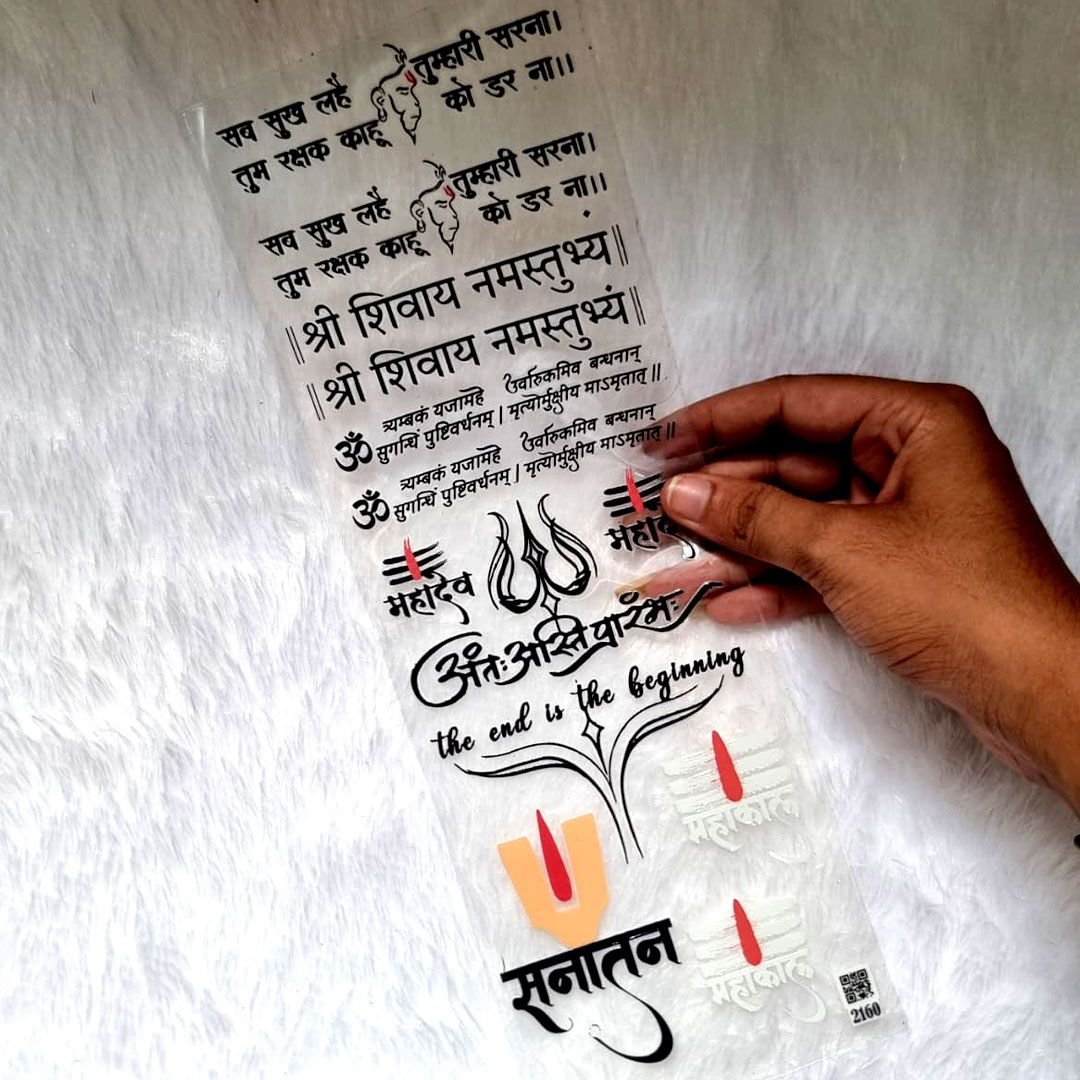 सब सुख लहै तुम्हारी सरना।
तुम रक्षक काहू को डर ना।।
सब सुख लहै तुम्हारी सरना।
तुम रक्षक काहू को डर ना।।
॥श्री शिवाय नमस्तुभ्यं॥
॥श्री शिवाय नमस्तुभ्यं॥
ॐ त्र्यम्बकं यजामहे उर्वारुकमिव बन्धनान्
सुगन्धिं पुष्टिवर्धनम् | मृत्योर्मुक्षीय माऽमृतात् ||
ॐ त्र्यम्बकं यजामहे उर्वारुकमिव बन्धनान्
सुगन्धिं पुष्टिवर्धनम् | मृत्योर्मुक्षीय माऽमृतात् ||
महादेव
अंतःअस्ति प्रारंभः
the end is the beginning
महाकाल
सनातन
महाकाल
2160